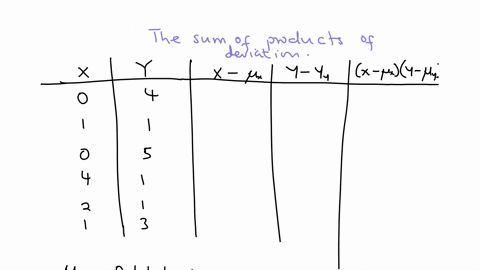 The sum of products of
deviation.
X Y X - μx Y - Yy (x-μx)(y-μy
0 4
1 1
0 5
4 1
2 1
1 3